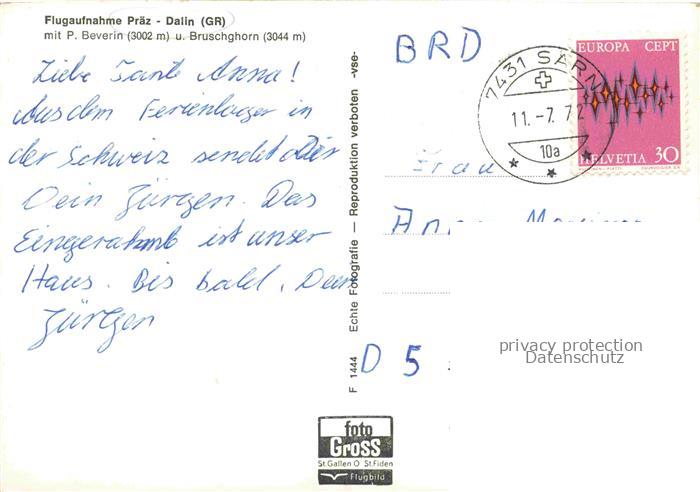 Flugaufnahme Präz - Dalin (GR)
mit P. Beverin (3002 m) u. Bruschghorn (3044 m)
Liebe Tante Anna!
Aus dem Ferienlager in
der Schweiz sendet Dir
Dein Jürgen. Das
Eingerahmte ist unser
Haus. Bis bald. Dein
Jürgen
F 1444 Echte Fotografie — Reproduktion verboten -vse-
BRD
7431 SARN
11.-7.72
10a
EUROPA CEPT
HELVETIA 30
Frau
D 5
privacy protection
Datenschutz
foto
Gross
St.Gallen O St.Fiden
Flugbild